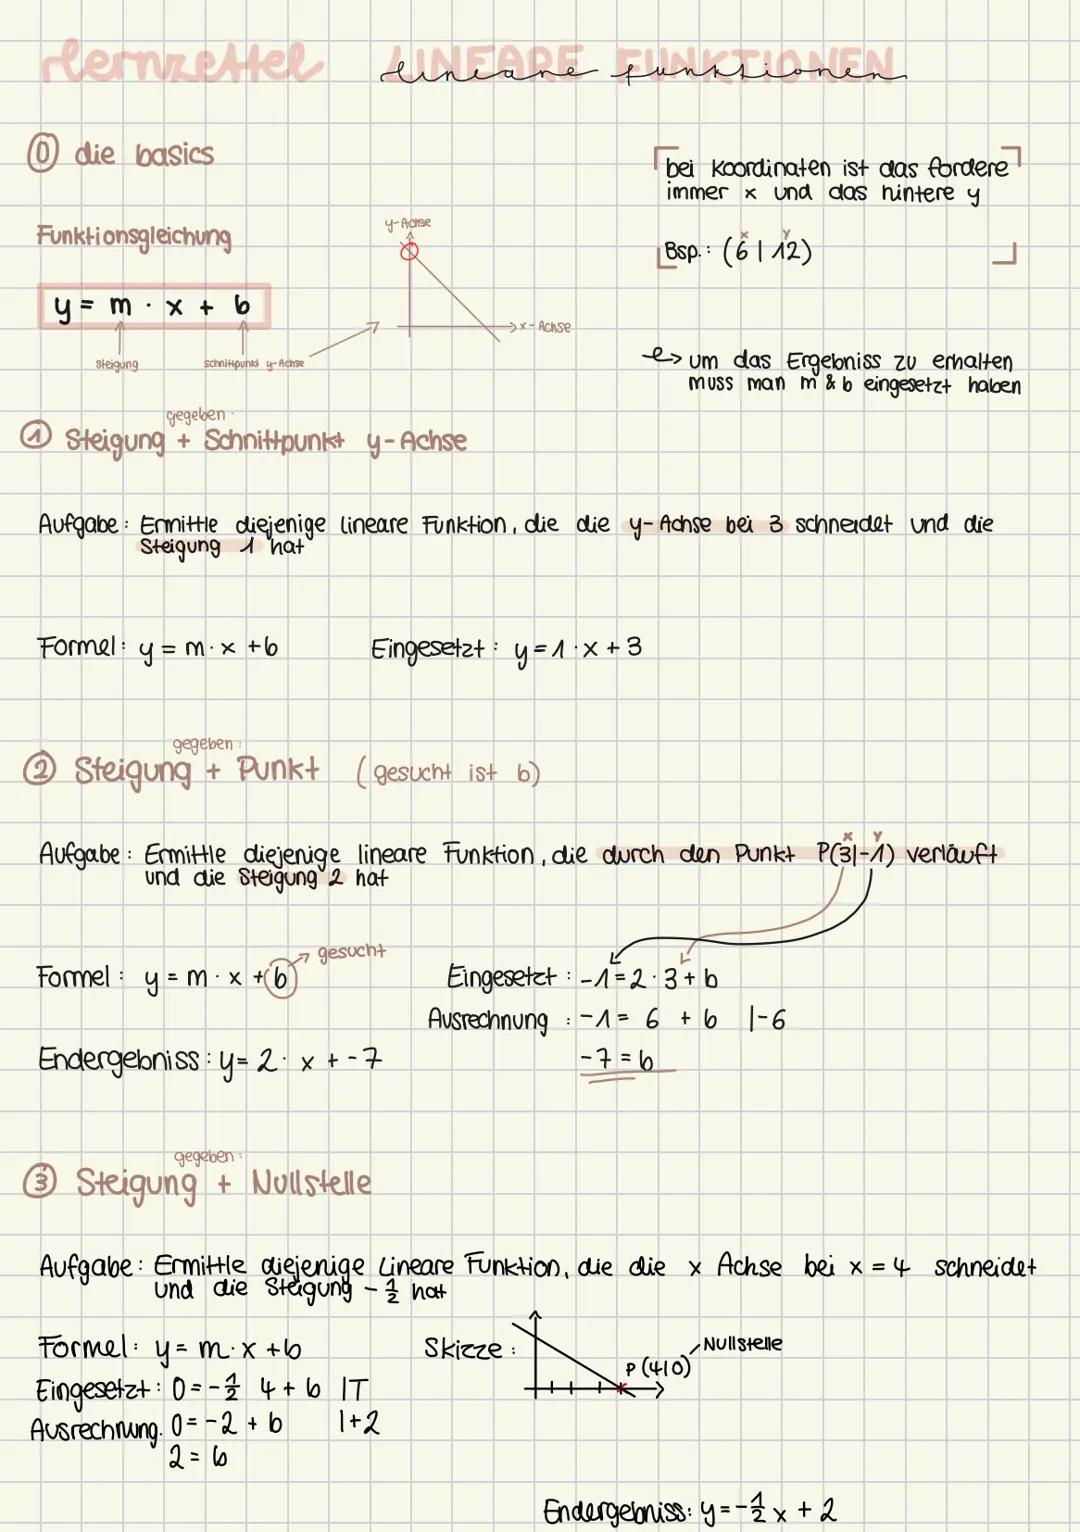 lernzettel LINEARE FUNKTIONEN
lineare funktionen
⓪ die basics
bei Koordinaten ist das fordere
immer x und das hintere y
x y
Bsp.: (6 | 12)
Funktionsgleichung
y = m · x + b
Steigung
Schnittpunkt y-Achse
y-Achse
x-Achse
↳ um das Ergebniss zu erhalten
muss man m & b eingesetzt haben
gegeben:
① Steigung + Schnittpunkt y-Achse
Aufgabe: Ermittle diejenige lineare Funktion, die die y-Achse bei 3 schneidet und die
Steigung 1 hat
Formel: y = m · x + b
Eingesetzt: y = 1 · x + 3
gegeben:
② Steigung + Punkt (gesucht ist b)
x y
Aufgabe: Ermittle diejenige lineare Funktion, die durch den Punkt P(3|-1) verläuft
und die Steigung 2 hat
gesucht
Formel: y = m · x + b
Eingesetzt: -1 = 2 · 3 + b
Ausrechnung: -1 = 6 + b |-6
-7 = b
Endergebniss: y = 2 · x + -7
gegeben:
③ Steigung + Nullstelle
Aufgabe: Ermittle diejenige Lineare Funktion, die die x Achse bei x = 4 schneidet
und die Steigung - 1/2 hat
Formel: y = m · x + b
Eingesetzt: 0 = - 1/2 4 + b |T
Ausrechnung. 0 = -2 + b |+2
2 = b
Skizze:
Nullstelle
P (4|0)
Endergebniss: y = - 1/2 x + 2